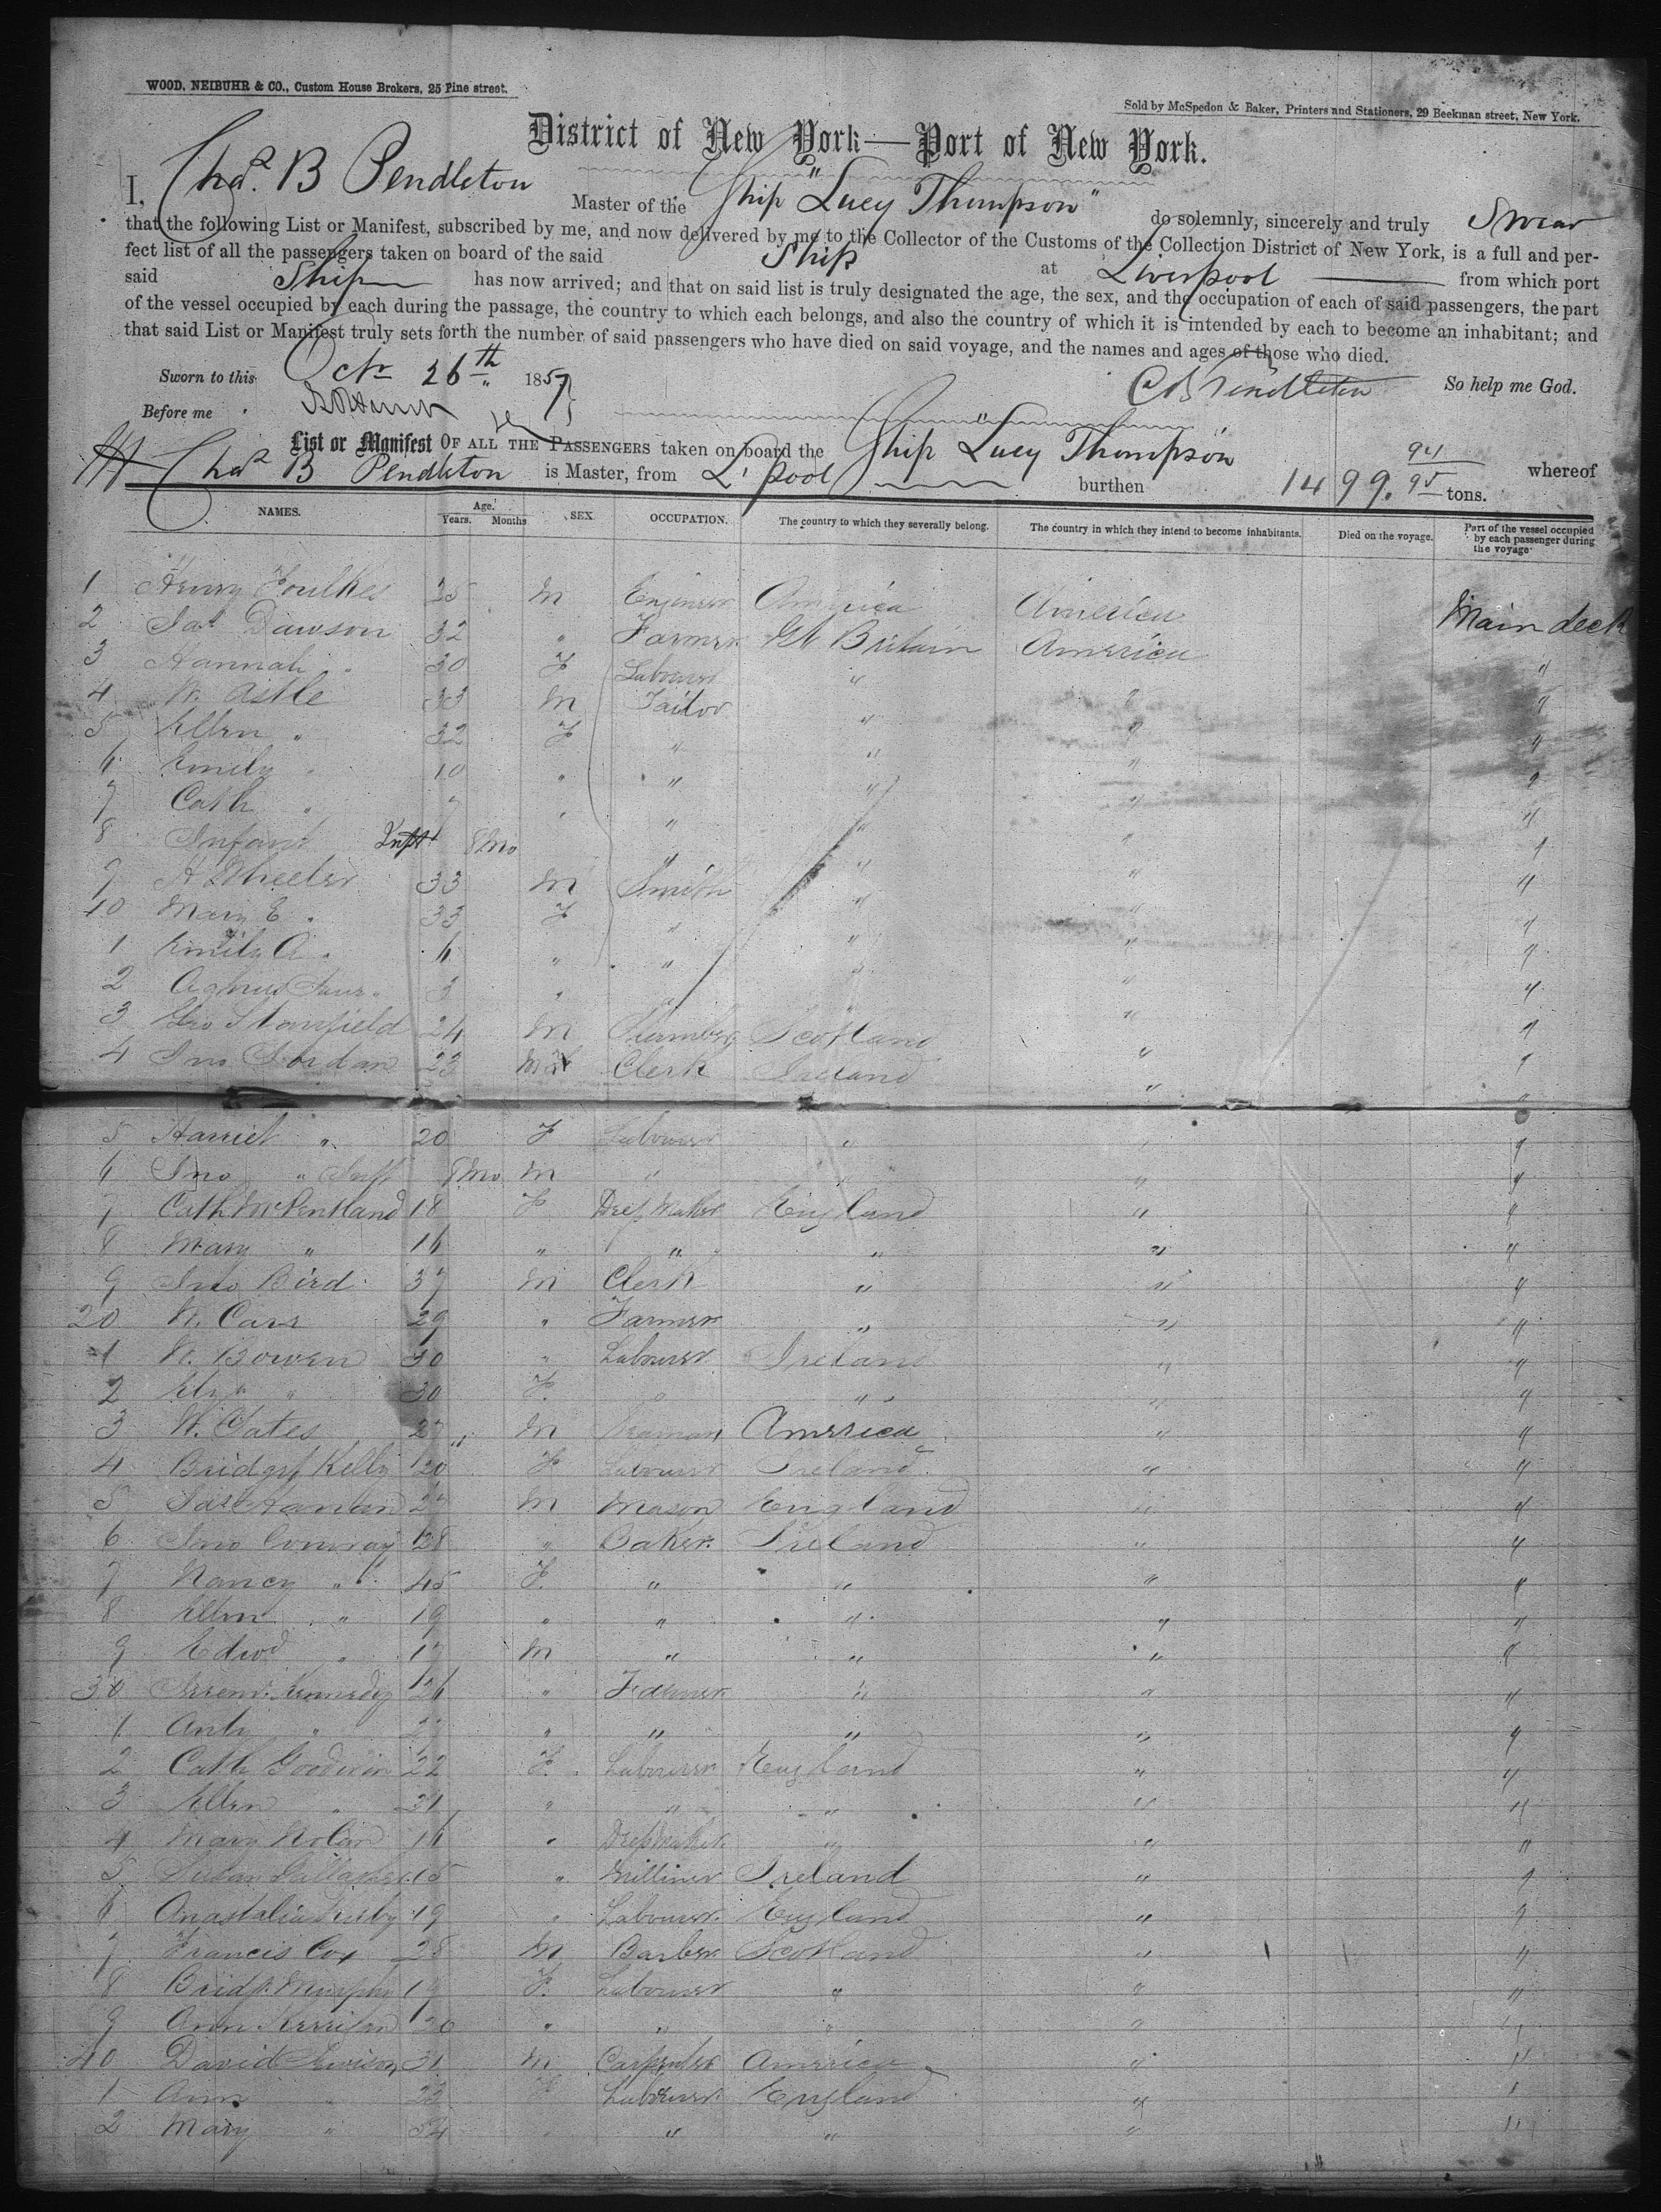 WOOD, NEIBUHR & CO., Custom House Brokers, 25 Pine street.
Sold by McSpedon & Baker, Printers and Stationers, 29 Beekman street, New York.
District of New York—Port of New York.
I, Chas. B Pendleton Master of the Ship "Lucy Thompson" do solemnly, sincerely and truly Swear
that the following List or Manifest, subscribed by me, and now delivered by me to the Collector of the Customs of the Collection District of New York, is a full and per-
fect list of all the passengers taken on board of the said Ship at Liverpool from which port
said Ship has now arrived; and that on said list is truly designated the age, the sex, and the occupation of each of said passengers, the part
of the vessel occupied by each during the passage, the country to which each belongs, and also the country of which it is intended by each to become an inhabitant; and
that said List or Manifest truly sets forth the number of said passengers who have died on said voyage, and the names and ages of those who died.
Sworn to this Octr 26th 1857 C B Pendleton So help me God.
Before me
List or Manifest OF ALL THE PASSENGERS taken on board the Ship Lucy Thompson whereof
Chas B Pendleton is Master, from L'pool burthen 1499. 94/95 tons.
NAMES. Age. Years. Months. SEX. OCCUPATION. The country to which they severally belong. The country in which they intend to become inhabitants. Died on the voyage. Part of the vessel occupied by each passenger during the voyage
1 Henry Foulkes 25 M Engineer America America Main deck
2 Jas Dawson 32 " Farmer Gt Britain America "
3 Hannah " 30 F Labourer " " "
4 W. Astle 33 M Tailor " " "
5 Ellen " 32 F " " " "
6 Emily " 10 " " " " "
7 Cath " " " " " "
8 Infant Inft 8 Mo " " " "
9 A Wheeler 33 M Smith " " "
10 Mary E. " 33 F " " " "
1 Emily A. " 6 " " " " "
2 Agnes " 3 " " " " "
3 Geo Stansfield 24 M Scotland " "
4 Jno Jordan 23 M Clerk Ireland " "
5 Harriet " 20 F Labourer " " "
6 Jno " Inft 8 Mo M " " " "
7 Cath McPentland 18 F Dress Maker England " "
8 Mary " 16 " " " " "
9 Jno Bird 37 M Clerk " " "
20 W. Carr 29 " Farmer " " "
1 W. Bowen 30 " Labourer Ireland " "
2 Elizh " 30 F. " " " "
3 W. Oates 27 M Seaman America " "
4 Bridget Kelly 20 F Labourer Ireland " "
5 Jas Hanlan 27 M Mason England " "
6 Jno Conway 28 " Baker Ireland " "
7 Nancy " 45 F. " " " "
8 Ellen " 19 " " " " "
9 Edwd " 17 M " " " "
30 Jerem. Kennedy 26 " Farmer " " "
1 Anty " 27 " " " " "
2 Cath Goodwin 22 F. Labourer England " "
3 Ellen " 21 " " " " "
4 Mary Nolan 16 " Dress Maker " " "
5 Susan Gallagher 15 " Milliner Ireland " "
6 Anastatia 19 " Labourer England " "
7 Francis Cox 28 M Barber Scotland " "
8 Bridgt Murphy 19 F. Labourer " " "
9 Ann Kerrigan 20 " " " " "
40 David 31 M Carpenter America " "
1 Ann " 22 F Labourer England " "
2 Mary " 34 " " " " "